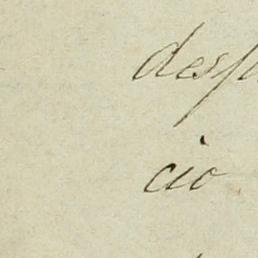 desp
cio